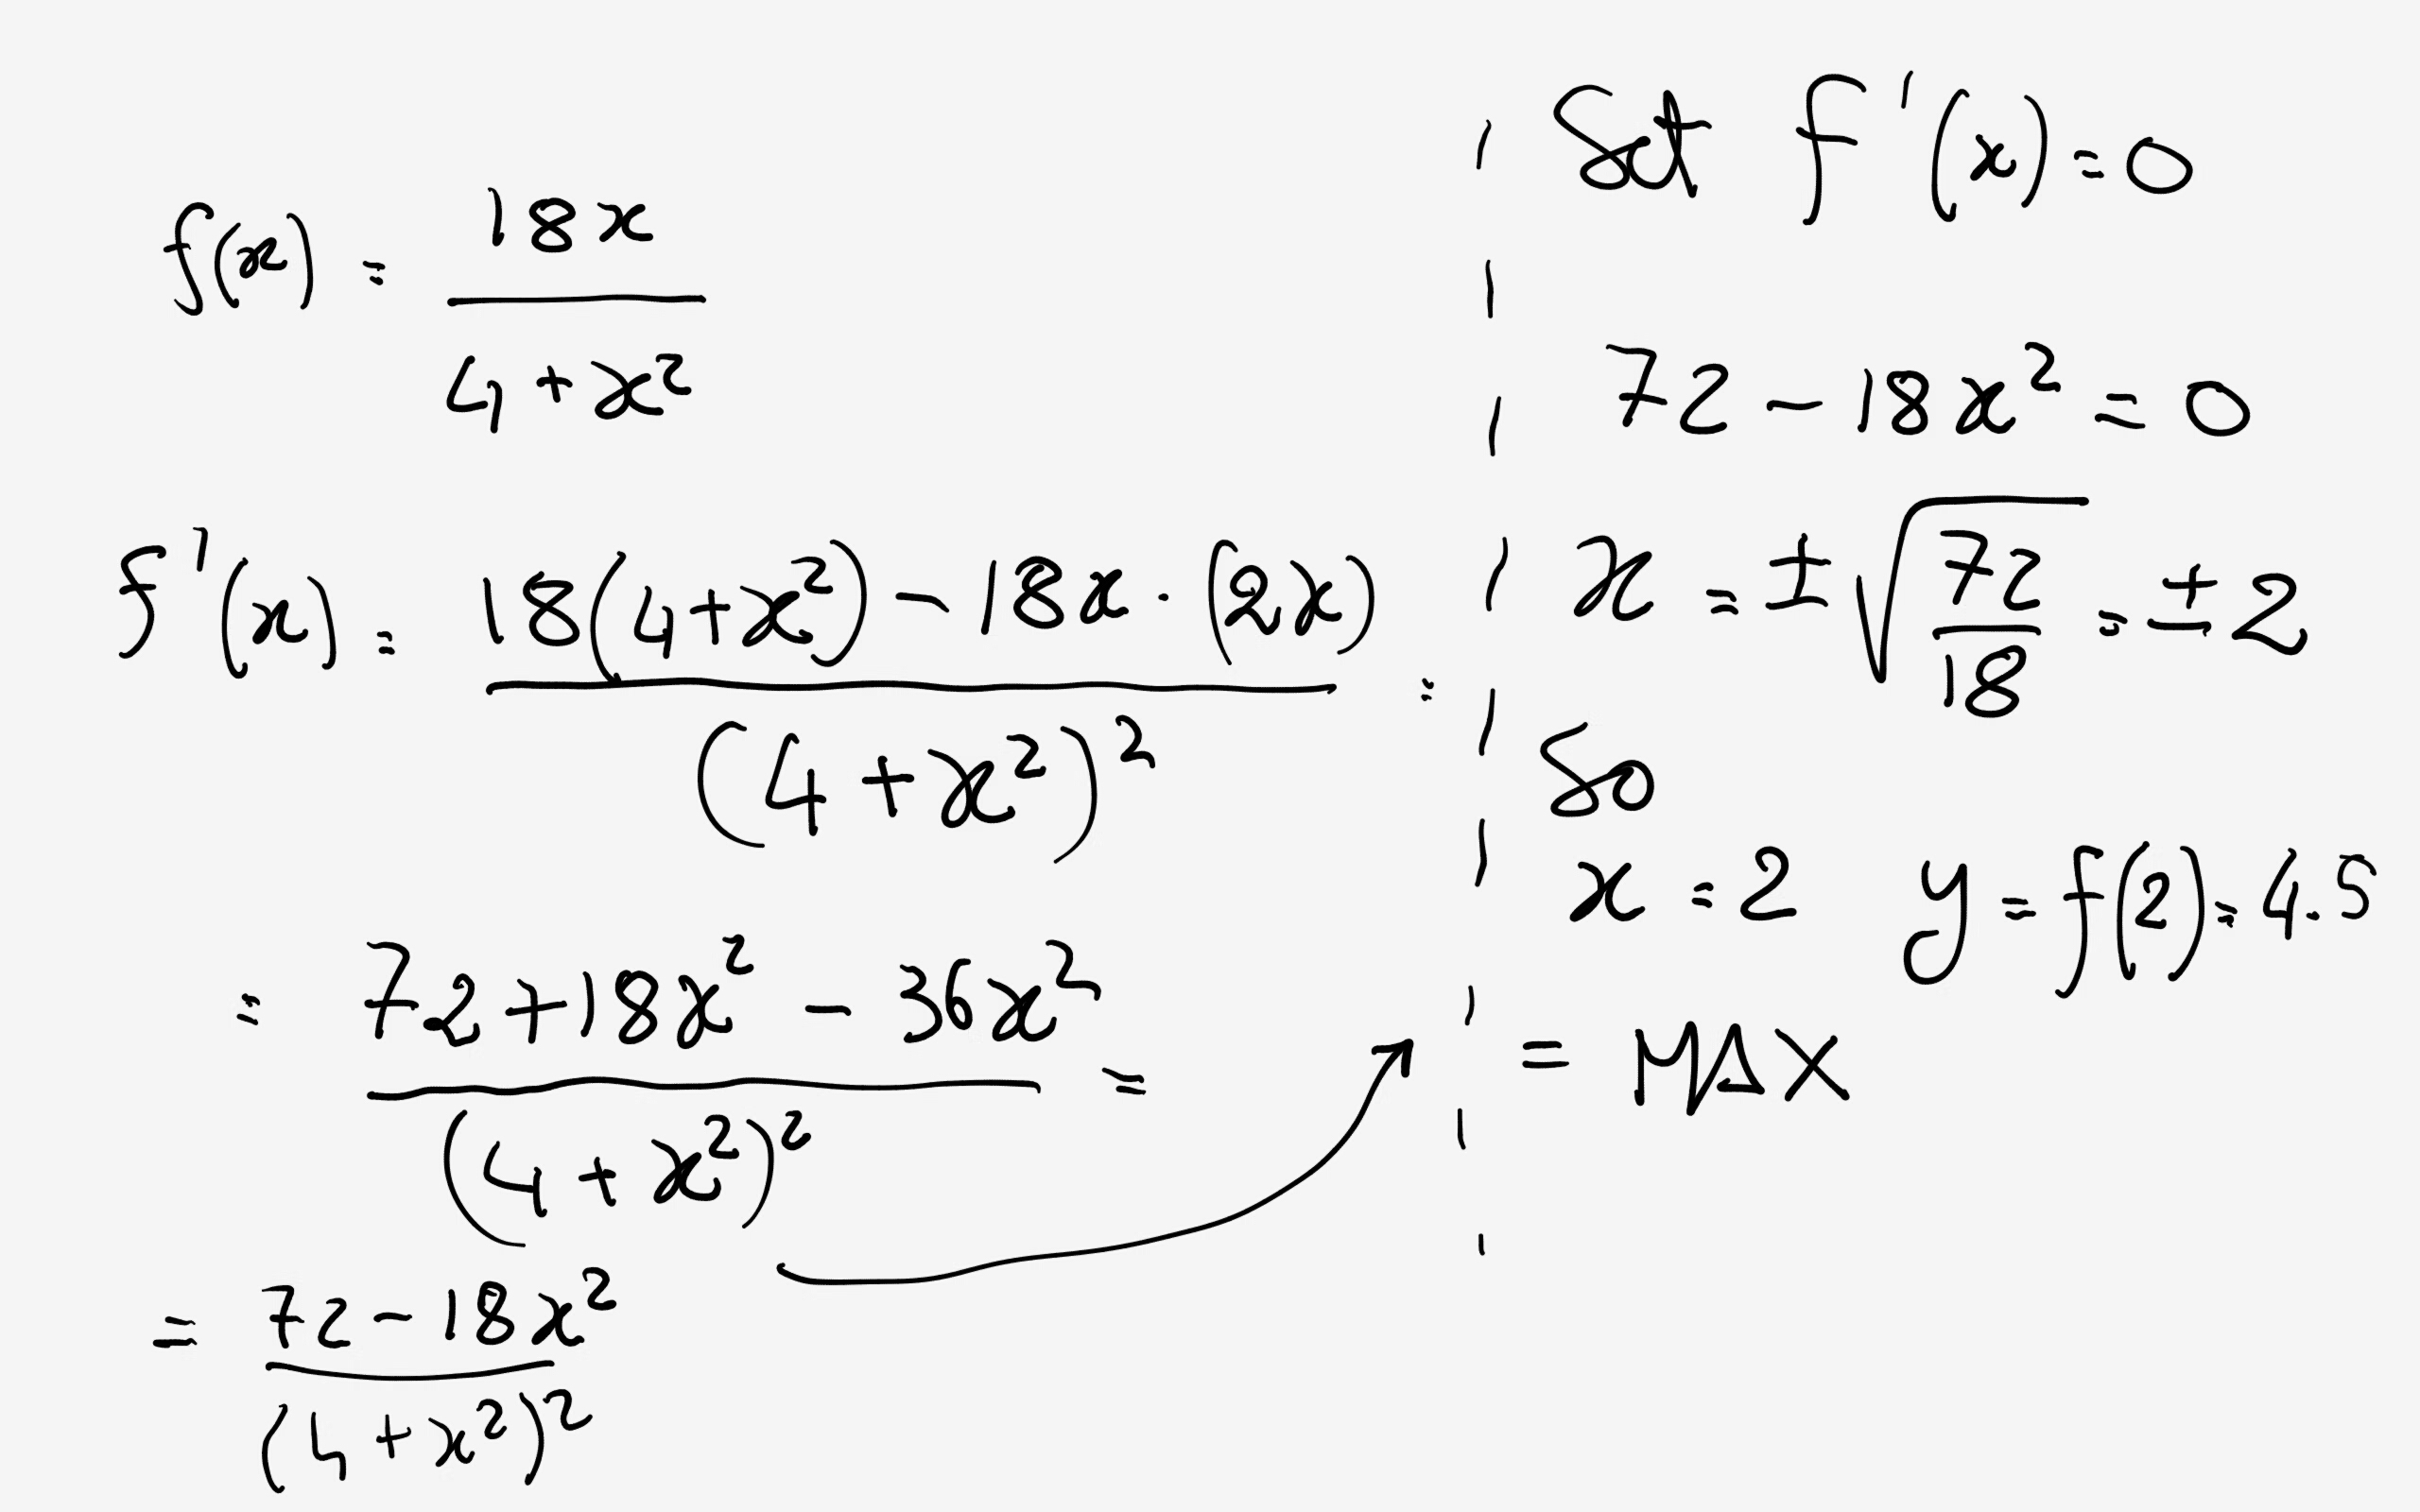 f(x) = 18x / 4+x²
f'(x) = 18(4+x²) - 18x · (2x) / (4+x²)² =
= 72+18x² - 36x² / (4+x²)² =
= 72-18x² / (4+x²)²
Set f'(x)=0
72-18x²=0
x = ±√72/18 = ±2
So
x = 2 y = f(2) = 4.5
= MAX